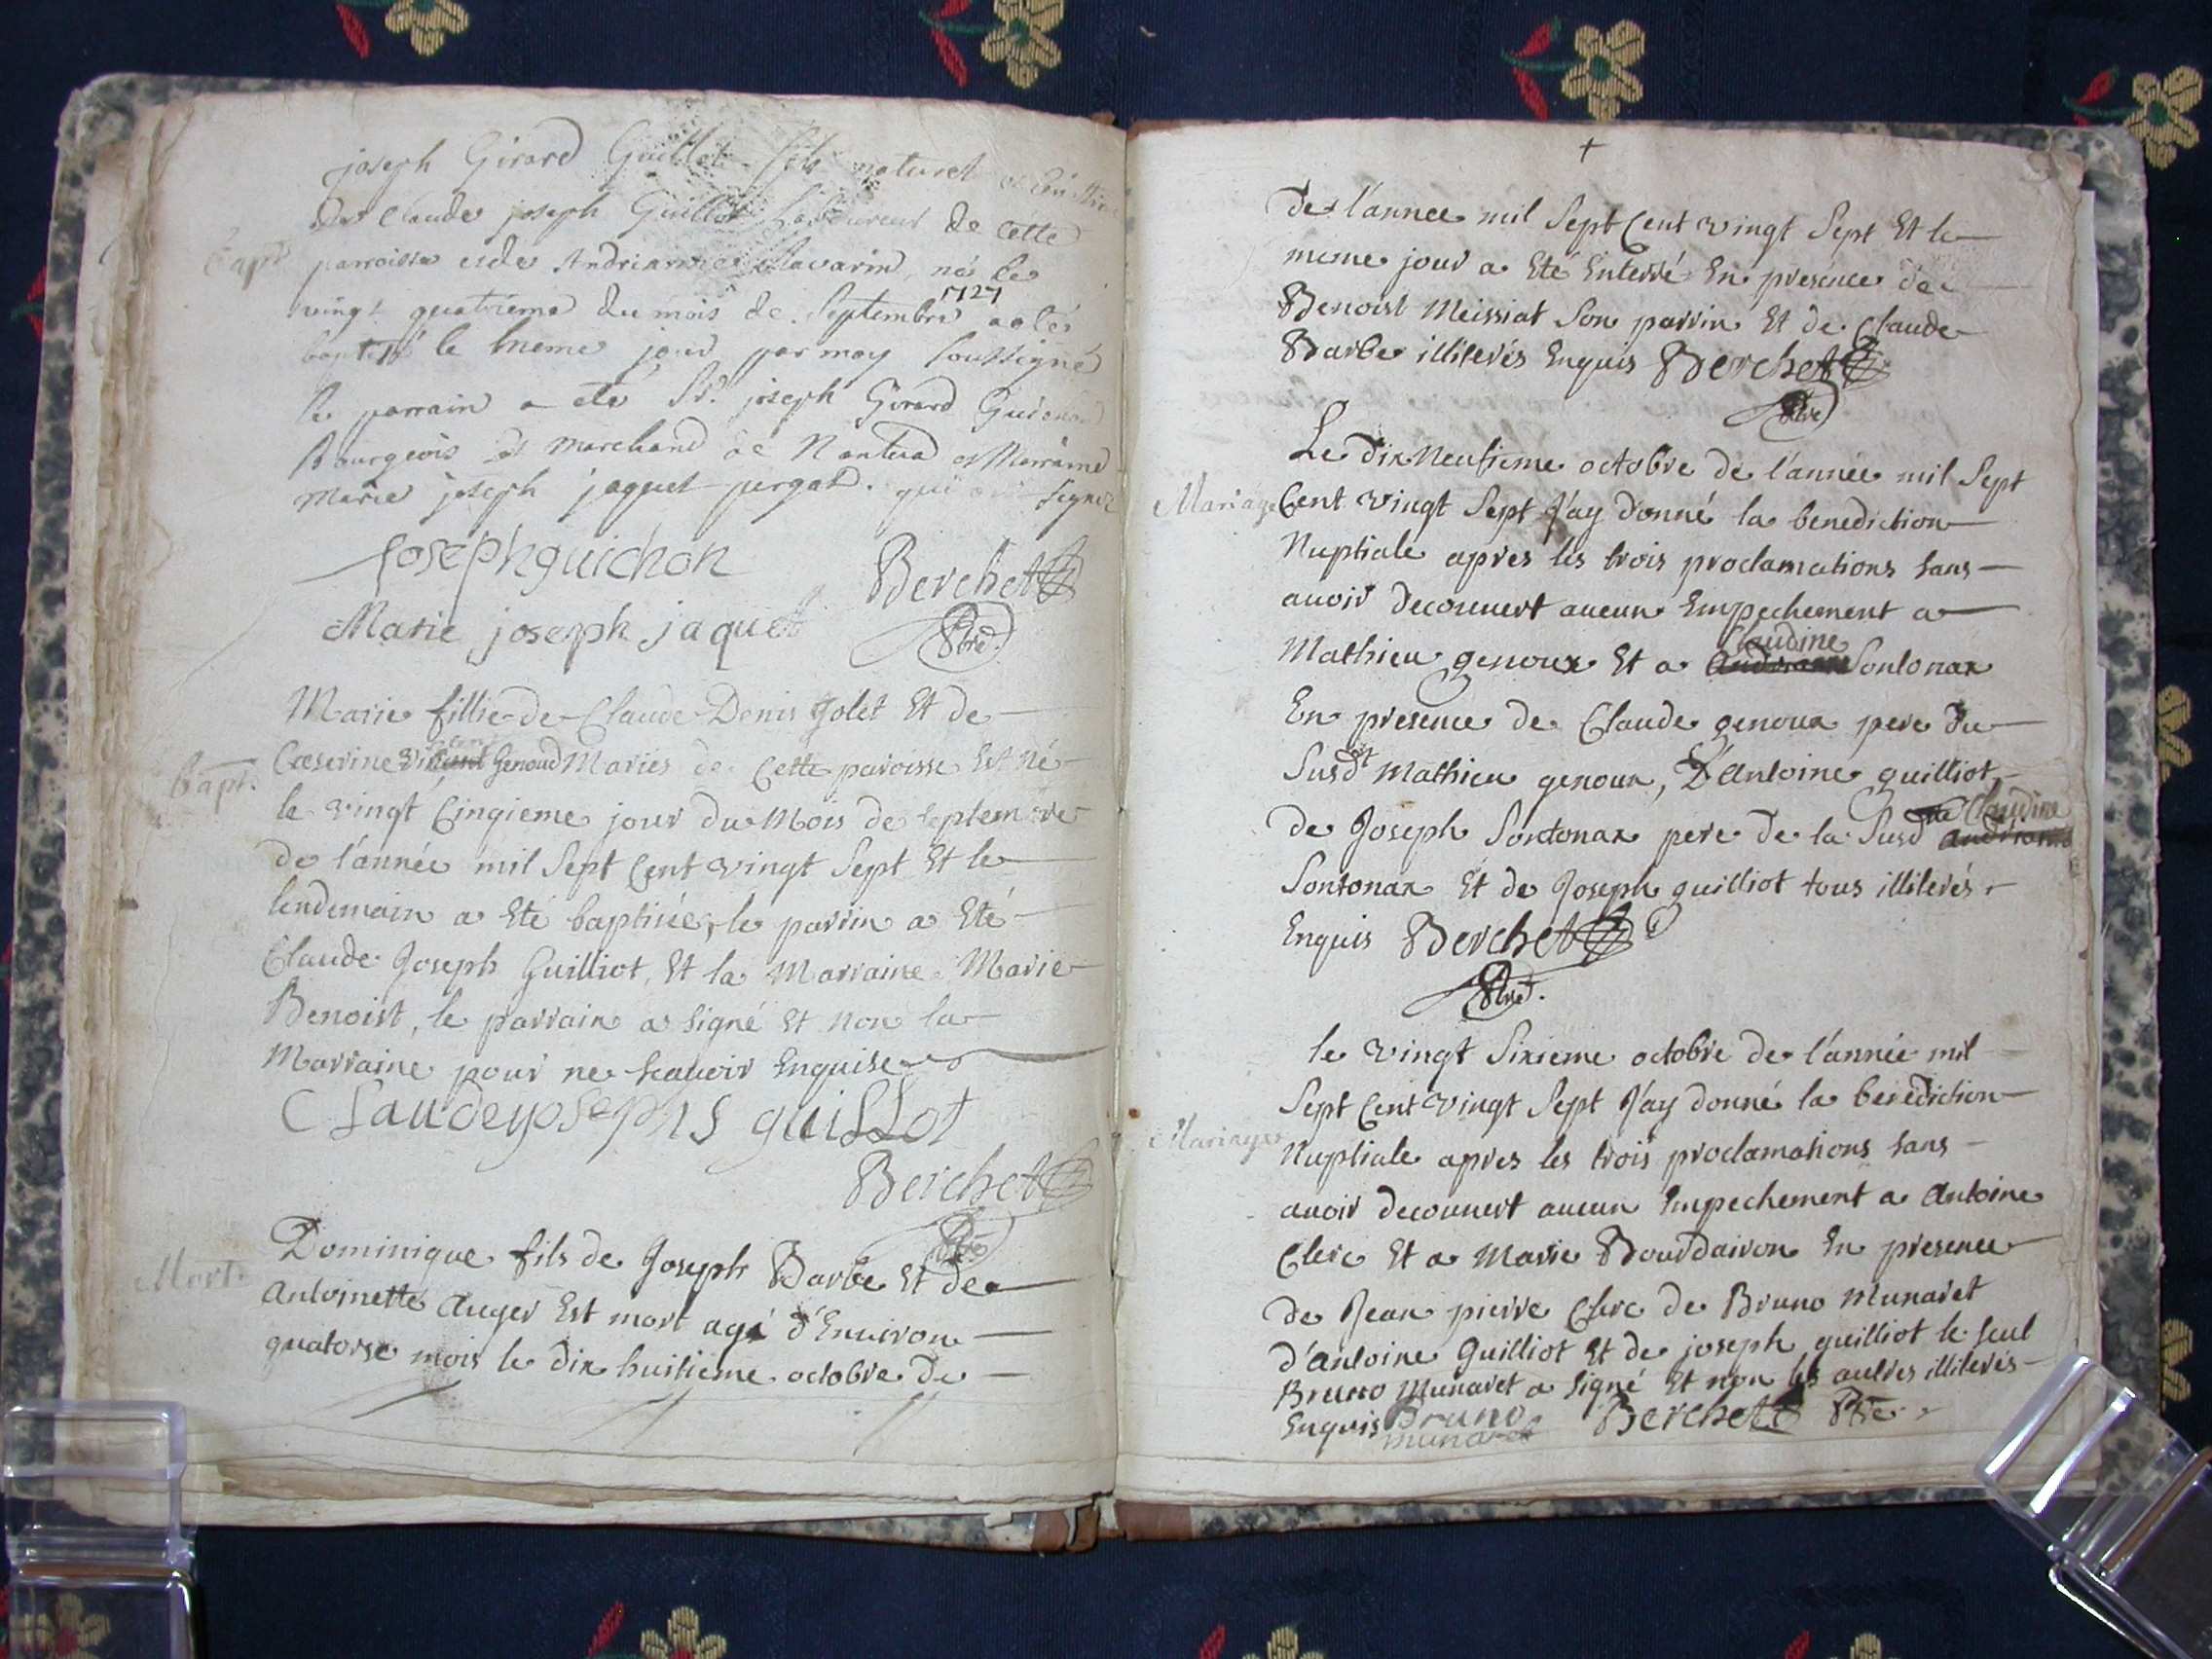 joseph Girard Guillot fils naturel et
de Claude joseph Guillot Laboureur de cette
Bapt. parroisse et de Andrianne Savarin, né le
vingt quatrieme du mois de Septembre 1727 a été
baptisé le meme jour par moy soussigné
le parrain a eté Sr. joseph Girard
Bourgeois et marchand de Nantua et Marraine
Marie joseph jaquet qui ont signez
joseph guichon
Berchet
Marie joseph jaquet
Ptre.
Marie fillie de Claude Denis Golet Et de
Caterine Genoud Mariés de Cette paroisse Est né
Bapt.
le vingt Cinqieme jour du Mois de septembre
de l'année mil Sept Cent vingt Sept Et le
lendemain a Eté baptisée, le parrin a Eté
Claude Joseph Guilliot, Et la Marraine Marie
Benoist, le parrain a signé Et non la
Marraine pour ne scavoir Enquise
Claudeyosephs guillot
Berchet
Ptre
Mort. Dominique fils de Joseph Barbe Et de
Antoinette Auger Est mort agé d'Environ
quatorse mois le dix huitieme octobre de
+
de l'annee mil Sept Cent vingt Sept Et le
meme jour a Eté Enterré En presence de
Benoist Meissiat Son parrin Et de Claude
Barbe illiterés Enquis Berchet
Ptre
Le dix neufieme octobre de l'année mil Sept
Mariage Cent vingt Sept J'ay donné la benediction
Nuptiale apres les trois proclamations sans
avoir decouvert aucun Empechement a
Claudine
Mathieu genoux Et a Sontonax
En presence de Claude genoux pere du
Susdt Mathieu genoux, D'antoine guilliot,
de Joseph Sontonax pere de la Susdte Claudine
Sontonax Et de Joseph guilliot tous illiterés
Enquis Berchet
Ptre.
le vingt Sixieme octobre de l'année mil
Sept Cent vingt Sept J'ay donné la benediction
Mariage
Nuptiale apres les trois proclamations sans
avoir decouvert aucun Empechement a Antoine
Clerc Et a Marie Bourdairon En presence
de Jean pierre Clerc de Bruno Munaret
d'antoine Guilliot Et de joseph guilliot le seul
Bruno Munaret a signé Et non les autres illiterés
Enquis Bruno Berchet Ptre
munaret